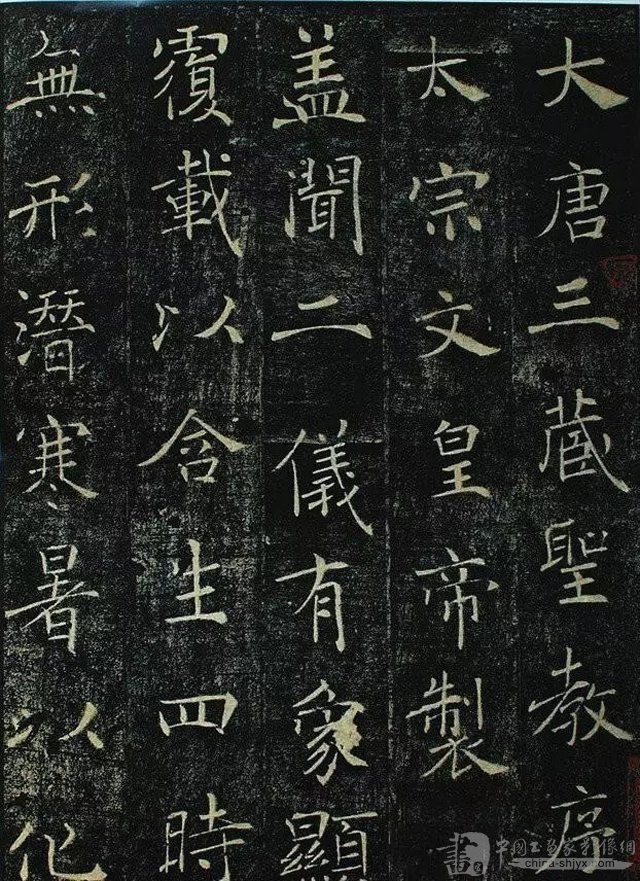 大唐三藏聖教序
太宗文皇帝製
盖聞二儀有象顯
覆載以含生四時
無形潛寒暑以化
china-shjyx.com